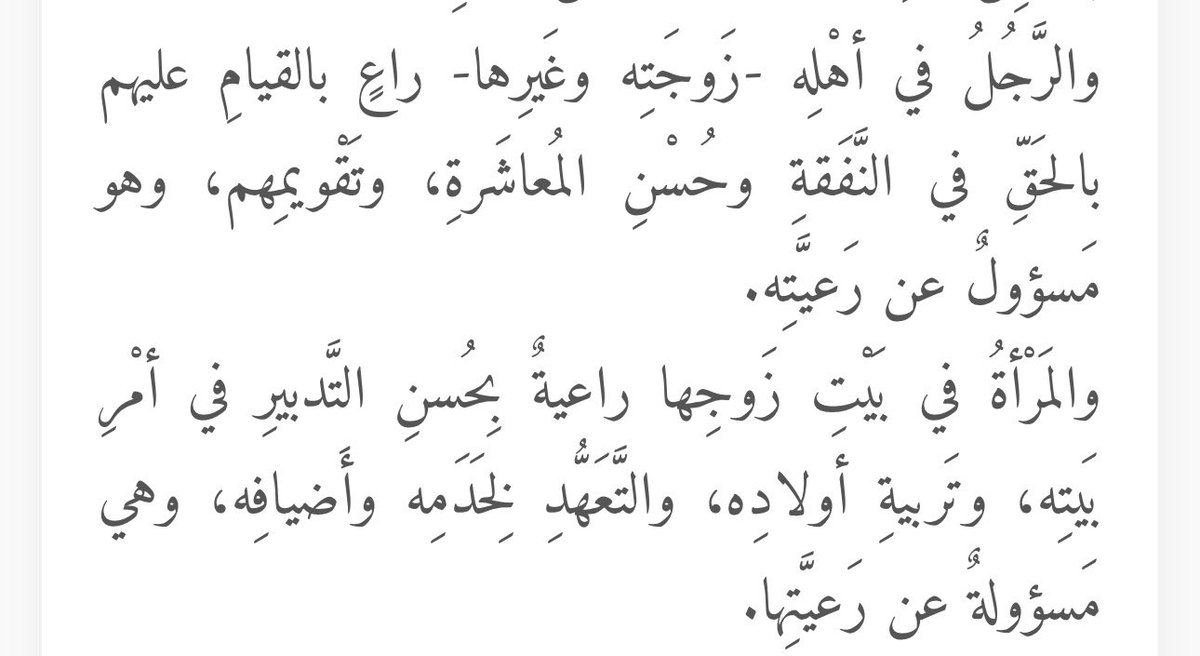 والرَّجُلُ في أهْلِه -زَوجَتِه وغَيرِها- راعٍ بالقيامِ عليهم
بالحَقِّ في النَّفَقةِ وحُسْنِ المُعاشَرةِ، وتَقْويمِهم، وهو
مَسؤولٌ عن رَعيَّتِه.
والمَرْأةُ في بَيْتِ زَوجِها راعيةٌ بِحُسنِ التَّدبيرِ في أمْرِ
بَيتِه، وتَربيةِ أولادِه، والتَّعَهُّدِ لِخَدَمِه وأَضيافِه، وهي
مَسؤولةٌ عن رَعيَّتِها.